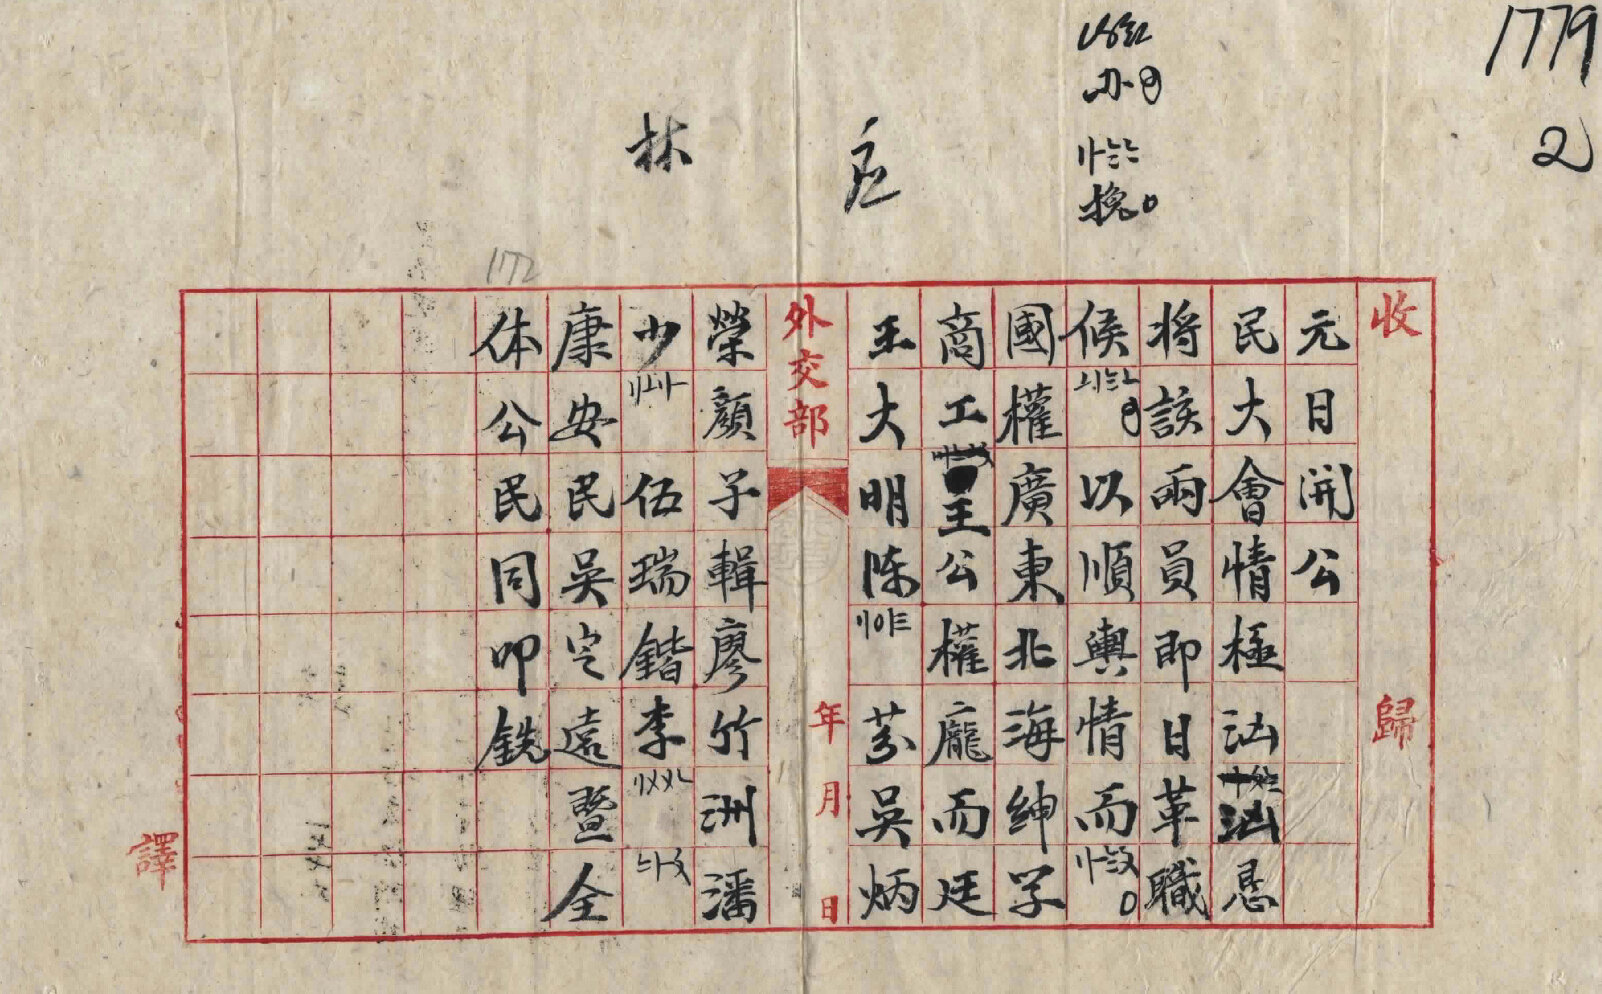 1779
2
林
172
收歸
元日開公
民大會情極汕汹恳
將該兩員即日革職
候以順輿情而
國權廣東北海紳学
商工王公權龐而廷
王大明陈芬吴炳
外交部
年月日
榮顏子輯廖竹洲潘
少伍瑞鍇李
康安民吴定遠暨全
体公民同叩銑
譯